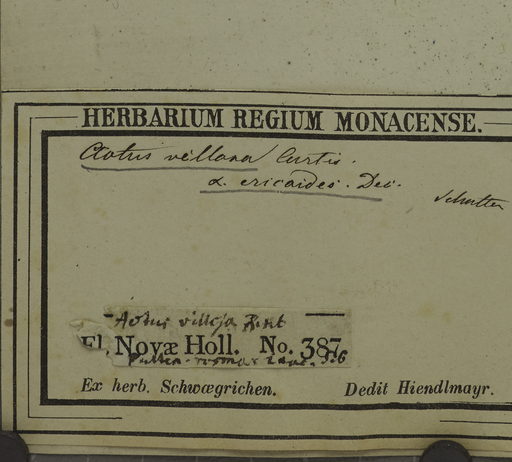 HERBARIUM REGIUM MONACENSE.
Aotus villosa Curtis.
α. ericoides. Dec.
Aotus villosa
Fl. Novæ Holl. No. 387.
Ex herb. Schwægrichen. Dedit Hiendlmayr.